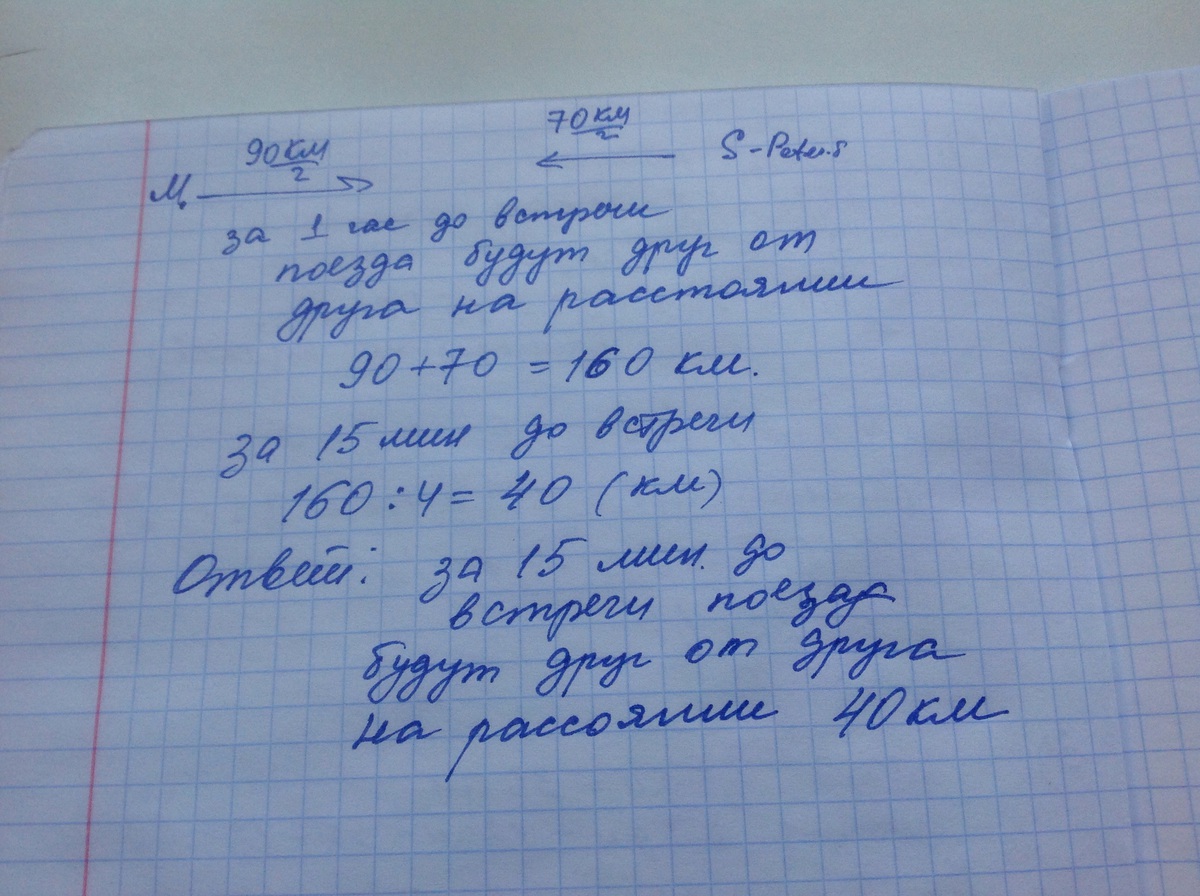 90 км/ч
70 км/ч
М
S-Peter.б
за 1 час до встречи
поезда будут друг от
друга на расстоянии
90+70 = 160 км.
за 15 мин до встречи
160 : 4 = 40 (км)
Ответ: за 15 мин. до
встречи поезда
будут друг от друга
на рассоянии 40 км